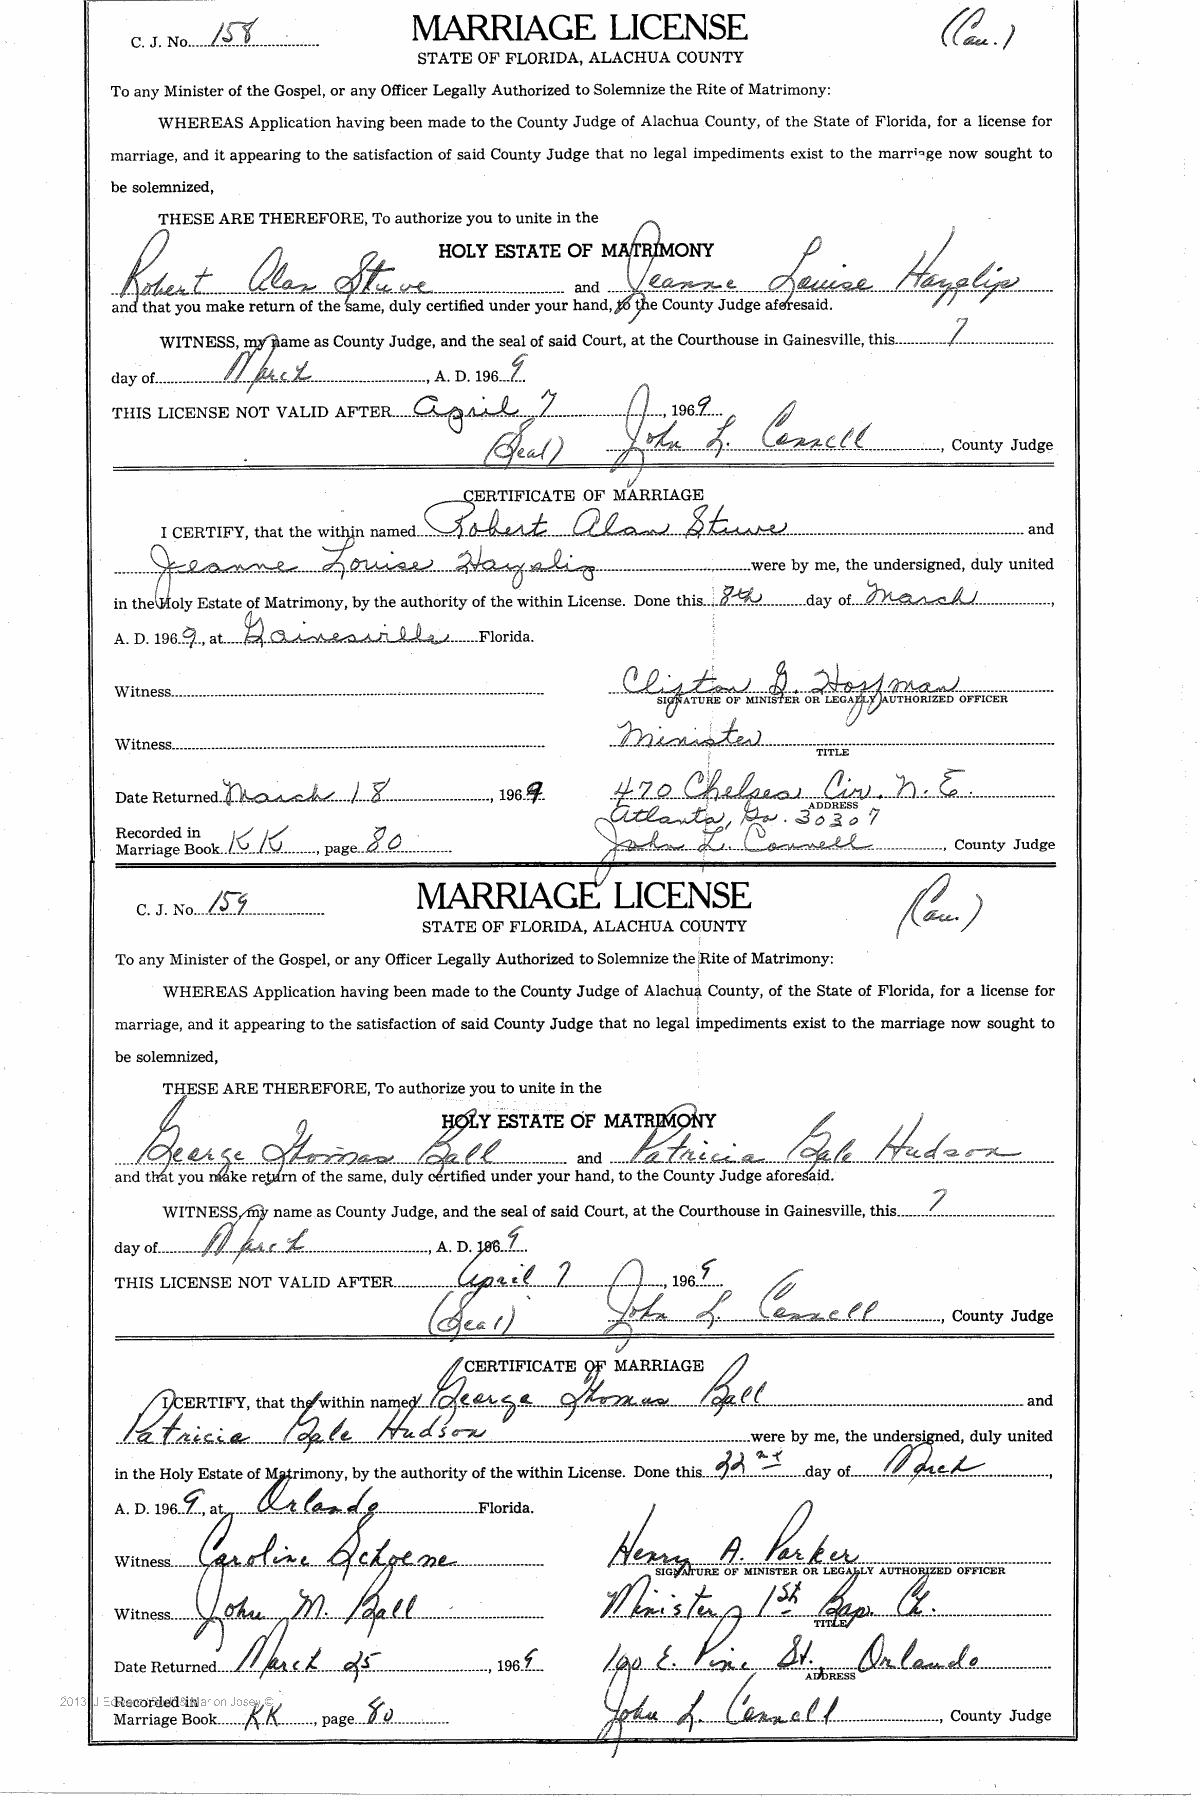 C. J. No. 158 MARRIAGE LICENSE (Cau.)
STATE OF FLORIDA, ALACHUA COUNTY
To any Minister of the Gospel, or any Officer Legally Authorized to Solemnize the Rite of Matrimony:
WHEREAS Application having been made to the County Judge of Alachua County, of the State of Florida, for a license for
marriage, and it appearing to the satisfaction of said County Judge that no legal impediments exist to the marriage now sought to
be solemnized,
THESE ARE THEREFORE, To authorize you to unite in the
HOLY ESTATE OF MATRIMONY
Robert Alan Stuwe and Jeanne Louise Hayslip
and that you make return of the same, duly certified under your hand, to the County Judge aforesaid.
WITNESS, my name as County Judge, and the seal of said Court, at the Courthouse in Gainesville, this 7
day of March, A. D. 196 9
THIS LICENSE NOT VALID AFTER April 7, 196 9
(Seal) John L. Connell, County Judge
CERTIFICATE OF MARRIAGE
I CERTIFY, that the within named Robert Alan Stuwe and
Jeanne Louise Hayslip were by me, the undersigned, duly united
in the Holy Estate of Matrimony, by the authority of the within License. Done this 8th day of March,
A. D. 196 9, at Gainesville Florida.
Witness Clifton G. Hoffman
SIGNATURE OF MINISTER OR LEGALLY AUTHORIZED OFFICER
Witness Minister
TITLE
Date Returned March 18, 196 9 470 Chelsea Cir. N. E.
ADDRESS
Atlanta, Ga. 30307
Recorded in
Marriage Book KK, page 80 John L. Connell, County Judge
C. J. No. 159 MARRIAGE LICENSE (Cau.)
STATE OF FLORIDA, ALACHUA COUNTY
To any Minister of the Gospel, or any Officer Legally Authorized to Solemnize the Rite of Matrimony:
WHEREAS Application having been made to the County Judge of Alachua County, of the State of Florida, for a license for
marriage, and it appearing to the satisfaction of said County Judge that no legal impediments exist to the marriage now sought to
be solemnized,
THESE ARE THEREFORE, To authorize you to unite in the
HOLY ESTATE OF MATRIMONY
George Thomas Ball and Patricia Gale Hudson
and that you make return of the same, duly certified under your hand, to the County Judge aforesaid.
WITNESS, my name as County Judge, and the seal of said Court, at the Courthouse in Gainesville, this 7
day of March, A. D. 196 9
THIS LICENSE NOT VALID AFTER April 7, 196 9
(Seal) John L. Connell, County Judge
CERTIFICATE OF MARRIAGE
I CERTIFY, that the within named George Thomas Ball and
Patricia Gale Hudson were by me, the undersigned, duly united
in the Holy Estate of Matrimony, by the authority of the within License. Done this 22nd day of March,
A. D. 196 9, at Orlando Florida.
Witness Caroline Schoene Henry A. Parker
SIGNATURE OF MINISTER OR LEGALLY AUTHORIZED OFFICER
Witness John M. Ball Minister, 1st Bap. Ch.
TITLE
Date Returned March 25, 196 9 190 E. Pine St. Orlando
ADDRESS
Recorded in
Marriage Book KK, page 80 John L. Connell, County Judge